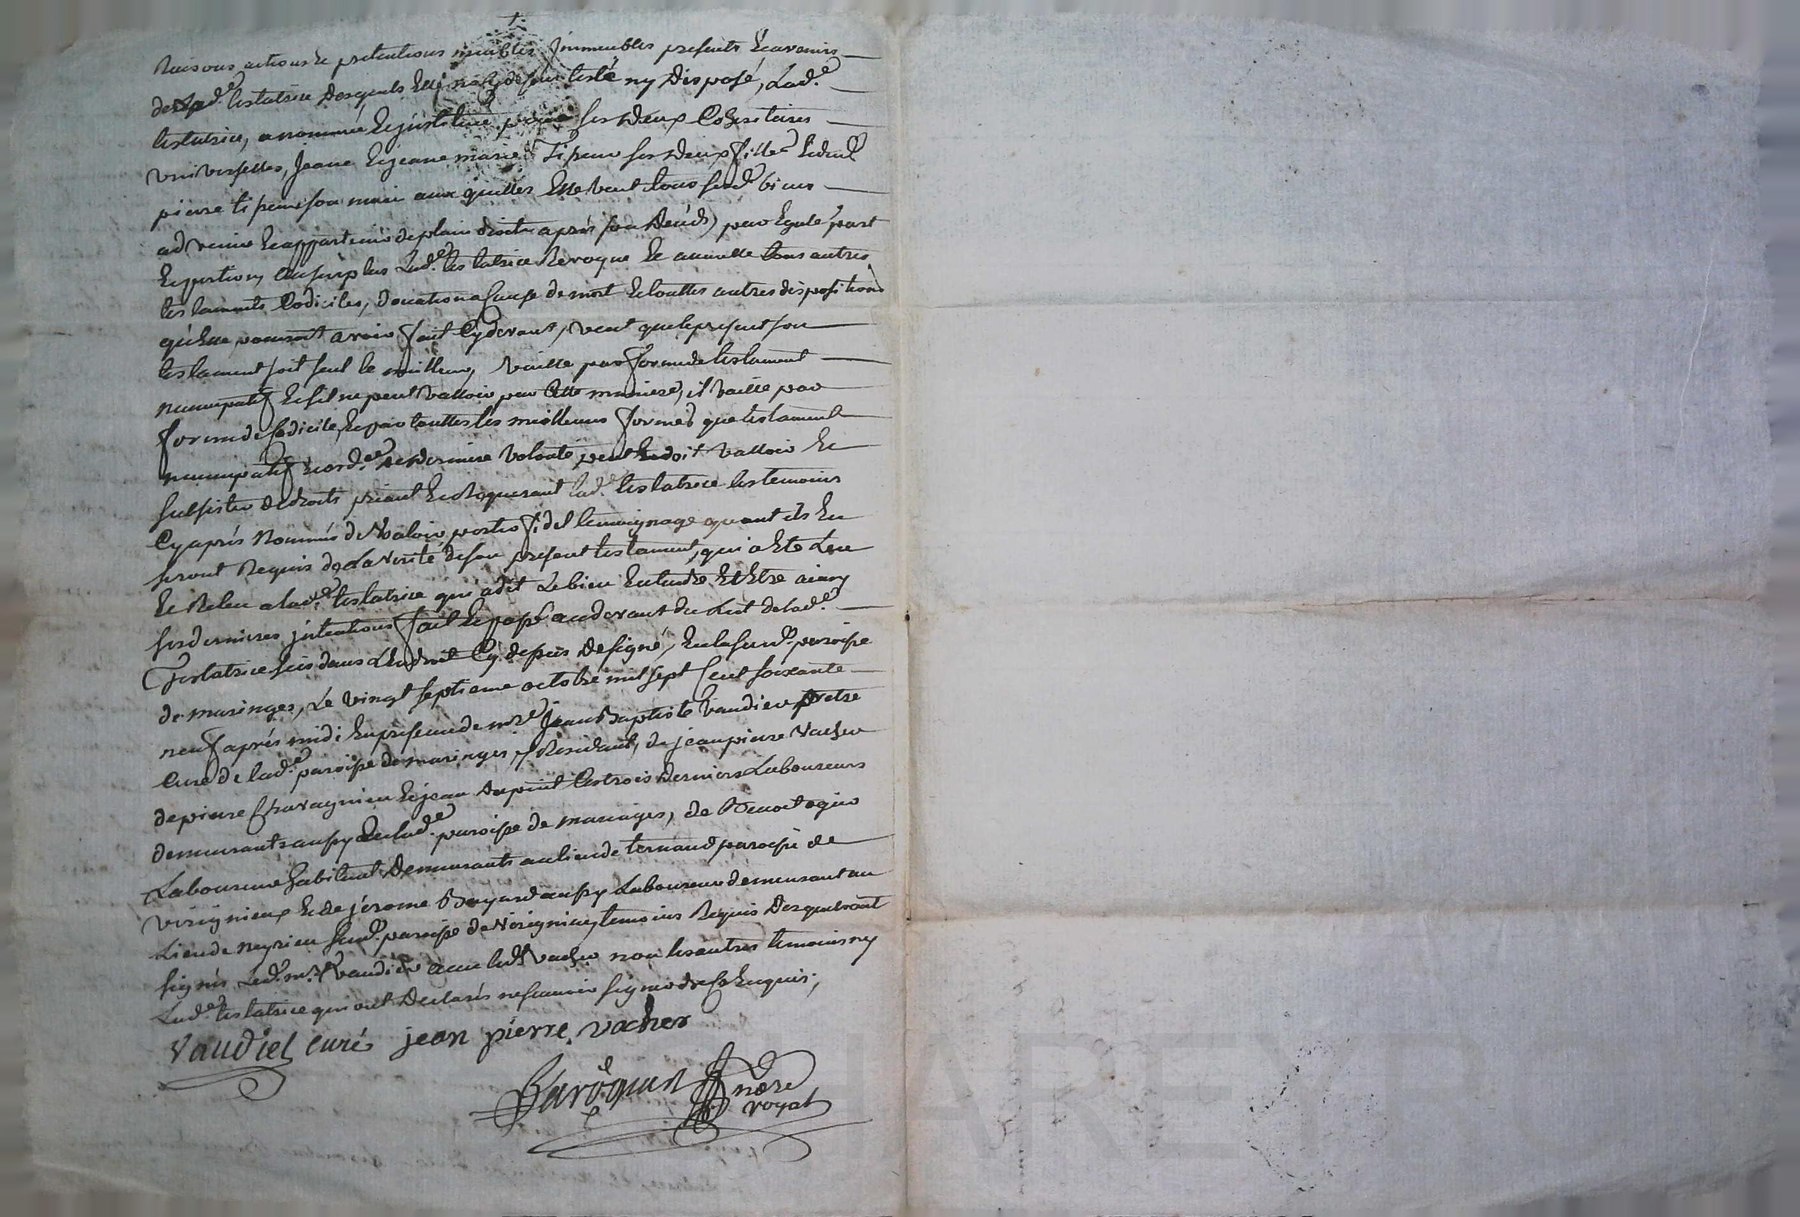 Raisons actions & pretentions meubles jmmeubles presents & avenirs
de lad.e testatrice desquels elle n'a cy dessus testé ny disposé, Lad.e
testatrice, a nommée & jnstituée pour ses deux Cohéritieres
universelles, Jeane & jeane marie ses deux filles & dud.
pierre son mari aux quelles elle veut tous sesd. biens
advenir & appartenir de plain droit après son deceds par Egale part
& portion, au surplus Lad.e testatrice Revoque & annulle tous autres
testaments Codiciles, donation a cause de mort & touttes autres dispositions
qu'elle pourroit avoir fait Cy devant, veut que le présent son
testament soit seul le meilleur, vaille par forme de testament
nuncupatif & s'il ne peut valloir par cette maniere, il vaille par
forme de Codicile, & par touttes les meilleures formes que testament
nuncupatif & ord.ce de derniere volonté peut & doit valloir &
subsister de droits priant & Requerant lad.e testatrice les temoins
Cy après Nommés de Vouloir porter fidel temoignage quant ils En
seront Requis de La verité de son présent testament, qui a Eté Leu
& Releu a lad.e testatrice qui a dit Le bien Entendre & Etre ainsy
ses dernieres jntentions fait & passé au devant du Lit de lad.e
Testatrice sis dans L'endroit Cy depuis designé, En la susd. paroisse
de maringes, Le vingt septieme octobre mil sept Cent soixante
neuf après midi En présence de m.re Jean Baptiste Vaudier Pretre
Curé de lad.e paroisse de maringes y Residant, de jean pierre Vacher
de pierre & jean dupuit Les trois derniers Laboureurs
demeurants aussy En lad.e paroisse de maringes, de Benoit ogier
Laboureur habitant demeurants au lieu de ternand paroisse de
virignieux & de jérome Bayard aussy Laboureur demeurant au
Lieu de neyrieu susd. paroisse de Virignieu temoins Requis desquels ont
signés Led. m.re Vaudier avec led. Vacher non les autres temoins ny
Lad.e testatrice qui ont declarés ne scavoir signer de ce Enquis;
Vaudier curé jean pierre vacher
nore
royal